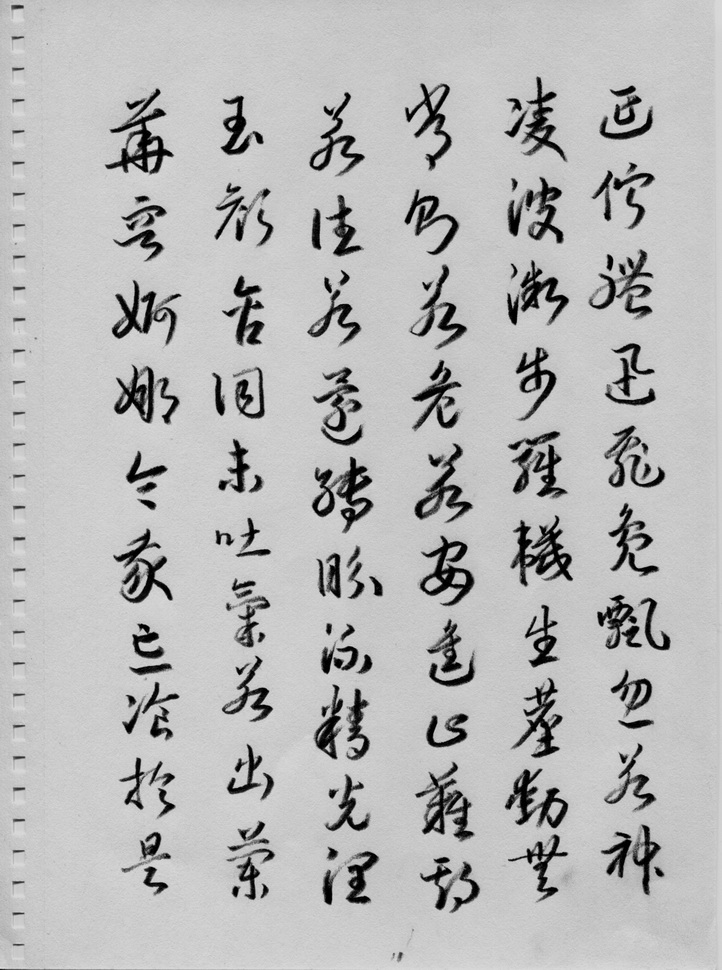 延佇體迅飛鳧飄忽若神
凌波微步羅襪生塵動無
常則若危若安進止難期
若往若還轉眄流精光潤
玉顏含詞未吐氣若幽蘭
華容婀娜令我忘飡於是